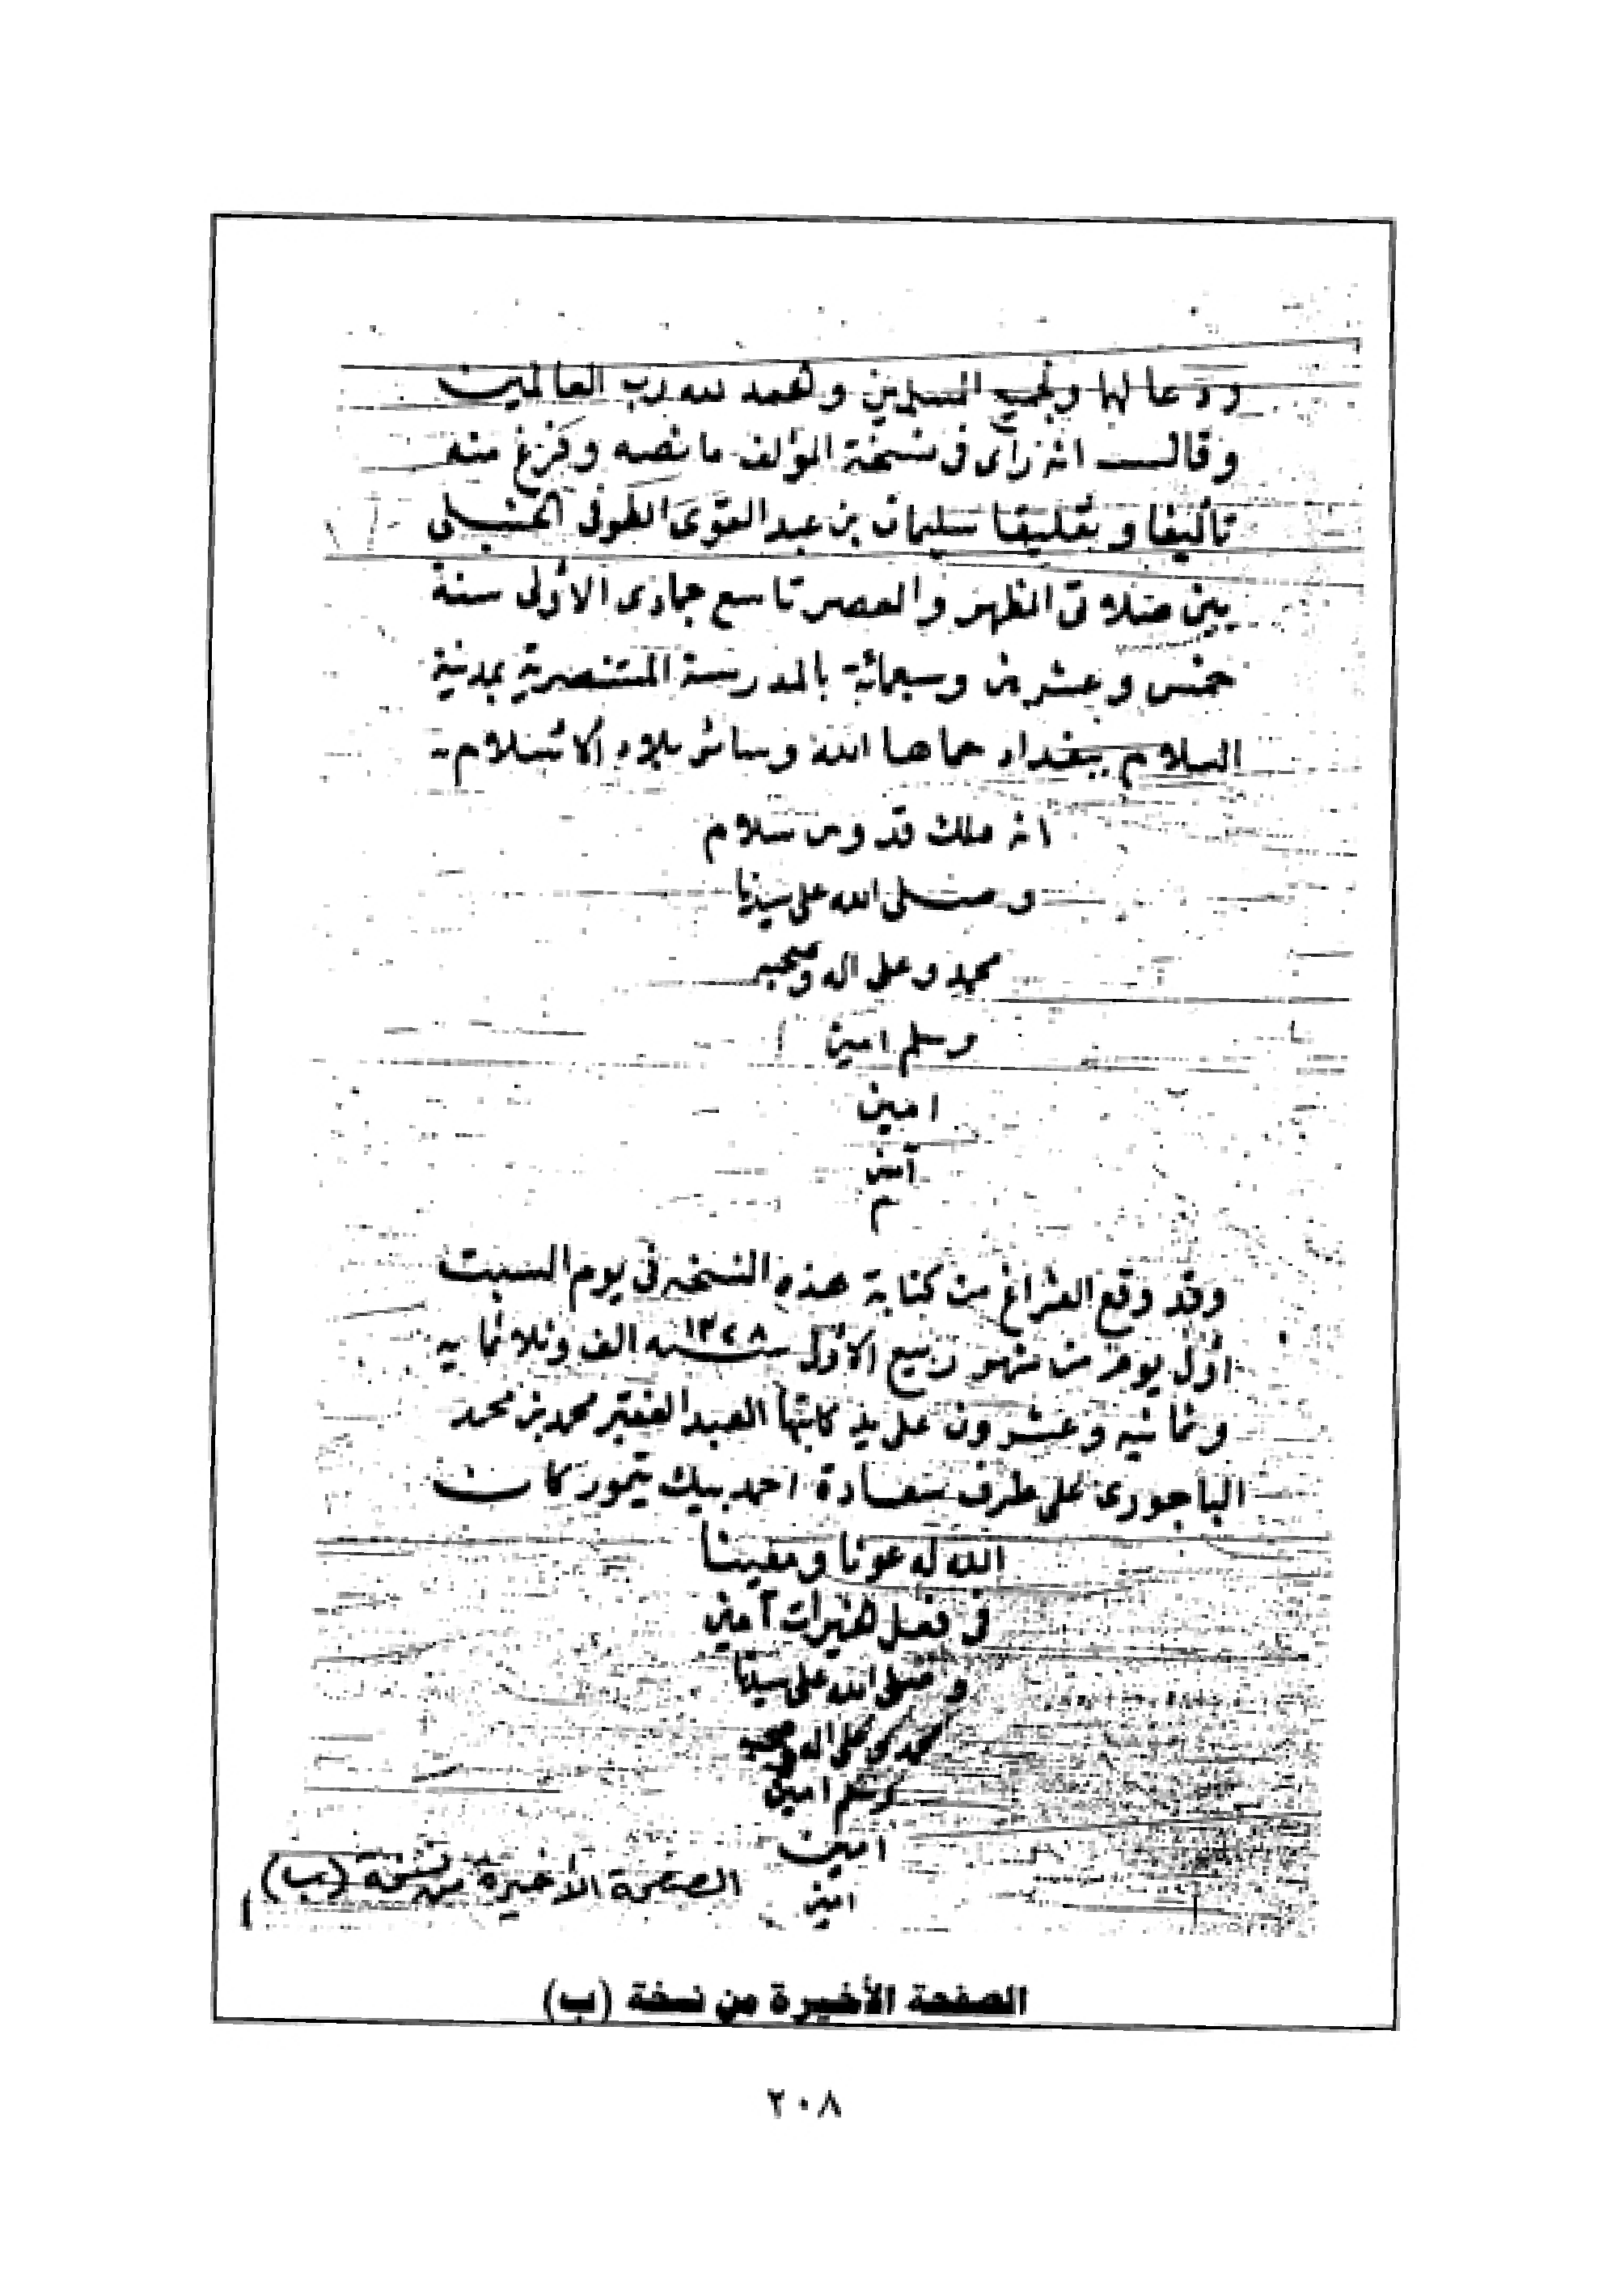 ودعا لها ولجميع المسلمين والحمد لله رب العالمين
وقال انه رأى فى نسخة المؤلف ما نصه وفرغ منه
تأليفا وتعليقا سليمان بن عبد القوى الطوفى الحنبلى
بين صلاتى الظهر والعصر تاسع جمادى الأولى سنة
خمس وعشرين وسبعمائة بالمدرسة المستنصرية بمدينة
السلام ببغداد حماها الله وسائر بلاد الاسلام
انه ملك قدوس سلام
وصلى الله على سيدنا
محمد وعلى اله وصحبه
وسلم امين
امين
آمين
م
وقد وقع الفراغ من كتابة هذه النسخه فى يوم السبت
اول يوم من شهر ربيع الأول سنه ١٣٢٨ الف وثلاثمايه
وثمانيه وعشرون على يد كاتبها العبد الفقير محمد بن محمد
الباجورى على طرف سعادة احمد بيك تيمور كان
الله له عونا ومعينا
فى فعل الخيرات آمين
وصلى الله على سيدنا
محمد وعلى اله وصحبه
وسلم امين
امين
امين
الصفحة الأخيرة من نسخة (ب)
الصفحة الأخيرة من نسخة (ب)
٢٠٨